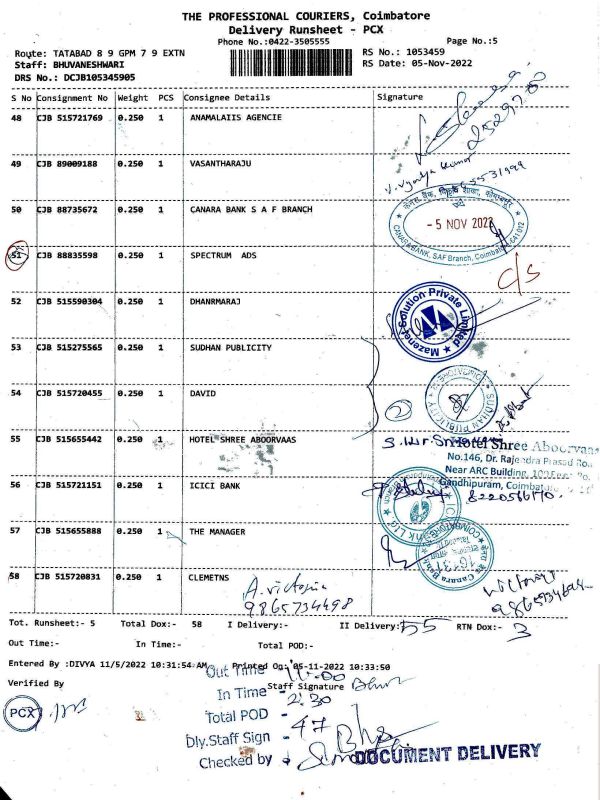 THE PROFESSIONAL COURIERS, Coimbatore
Delivery Runsheet - PCX
Phone No.:0422-3505555
Page No.:5
Route: TATABAD 8 9 GPM 7 9 EXTN
RS No.: 1053459
Staff: BHUVANESHWARI
RS Date: 05-Nov-2022
DRS No.: DCJB105345905
S No Consignment No Weight PCS Consignee Details Signature
48 CJB 515721769 0.250 1 ANAMALAIIS AGENCIE
49 CJB 89009188 0.250 1 VASANTHARAJU
50 CJB 88735672 0.250 1 CANARA BANK S A F BRANCH
- 5 NOV 2022
CANARA BANK, SAF Branch, Coimbatore-641 012
51 CJB 88835598 0.250 1 SPECTRUM ADS
C/S
52 CJB 515590304 0.250 1 DHANRMARAJ
Mazenet Solution Private Limited
53 CJB 515275565 0.250 1 SUDHAN PUBLICITY
SUDHAN PUBLICITY
54 CJB 515720455 0.250 1 DAVID
2
55 CJB 515655442 0.250 1 HOTEL SHREE ABOORVAAS
Hotel Shree Aboorvaas
No.146, Dr. Rajendra Prasad Ro
Near ARC Building, 100 Feet Ro
Gandhipuram, Coimbato
56 CJB 515721151 0.250 1 ICICI BANK
57 CJB 515655888 0.250 1 THE MANAGER
Canara Bank
58 CJB 515720831 0.250 1 CLEMETNS
A. victoria
9865734498
Tot. Runsheet:- 5 Total Dox:- 58 I Delivery:- II Delivery:- 55 RTN Dox:- 3
Out Time:- In Time:- Total POD:-
Entered By :DIVYA 11/5/2022 10:31:54 AM Printed On: 05-11-2022 10:33:50
Verified By
Staff Signature
PCX
Out Time - 11.00
In Time - 2.30
Total POD - 47
Dly.Staff Sign -
Checked by
DOCUMENT DELIVERY